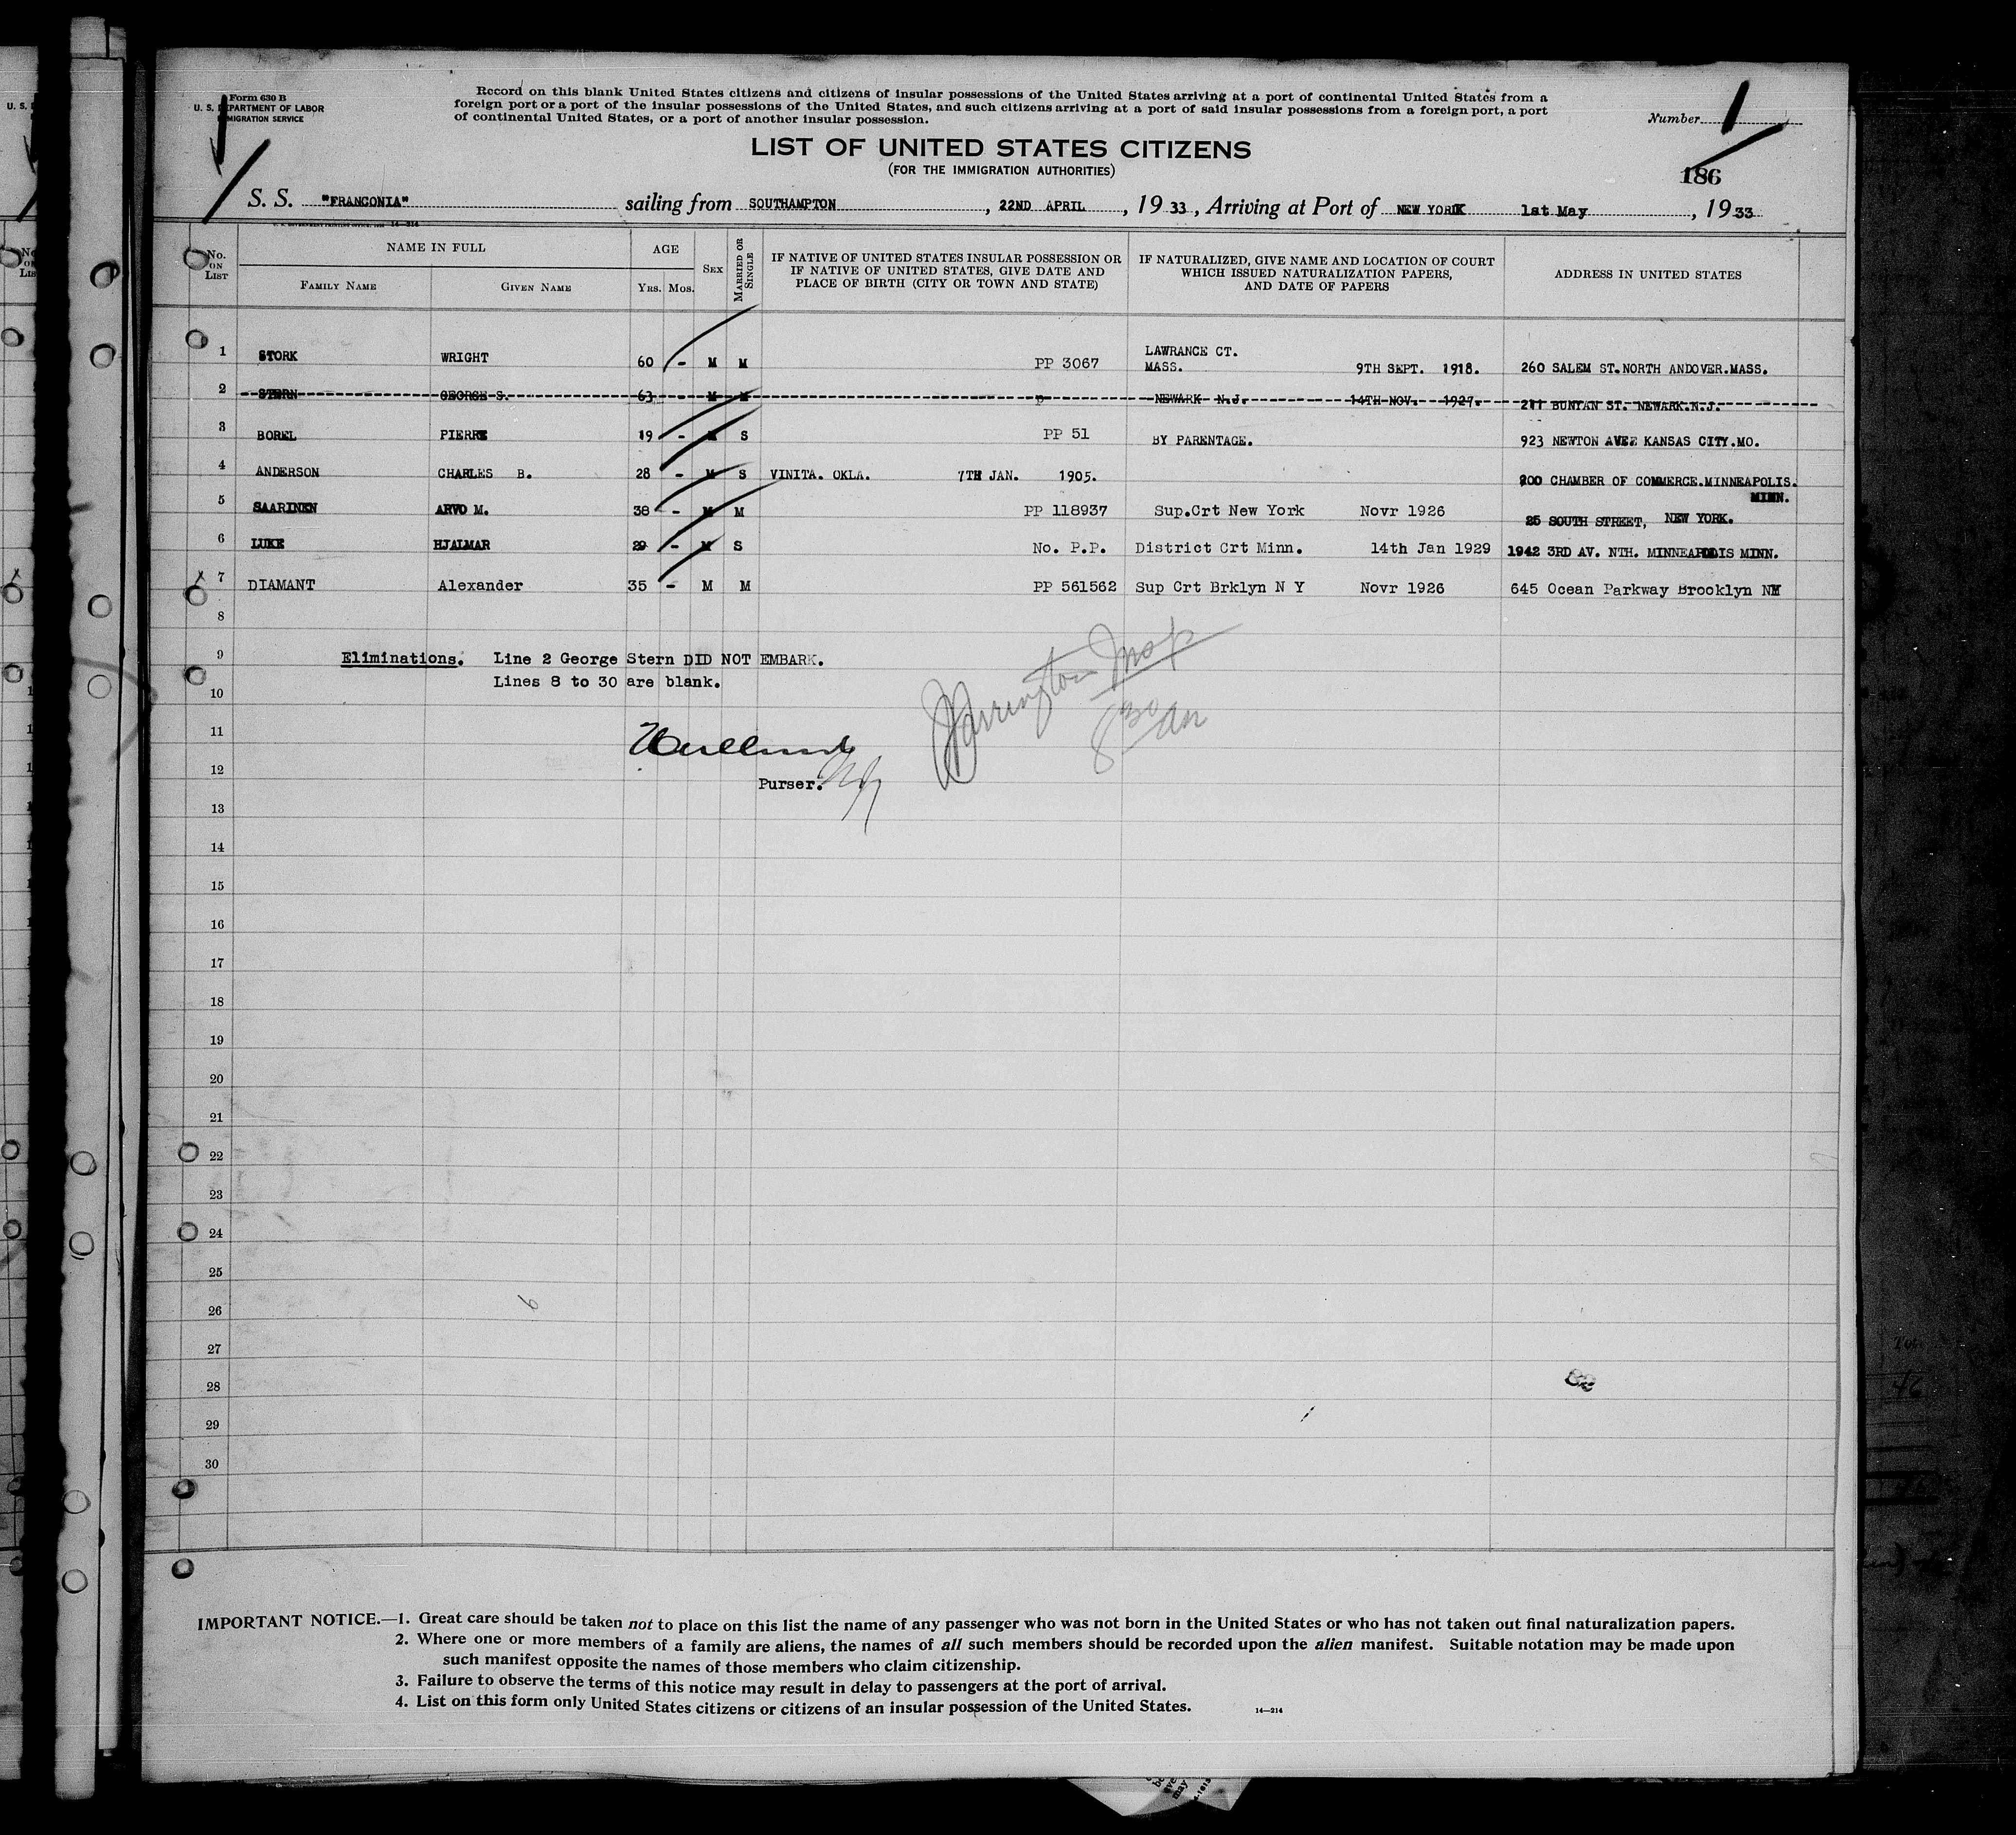 Form 630 B
U. S. DEPARTMENT OF LABOR
IMMIGRATION SERVICE
Record on this blank United States citizens and citizens of insular possessions of the United States arriving at a port of continental United States from a
foreign port or a port of the insular possessions of the United States, and such citizens arriving at a port of said insular possessions from a foreign port, a port
of continental United States, or a port of another insular possession.
Number 1
LIST OF UNITED STATES CITIZENS
(FOR THE IMMIGRATION AUTHORITIES)
186
S. S. "FRANCONIA" sailing from SOUTHAMPTON, 22ND APRIL, 1933, Arriving at Port of NEW YORK 1st May, 1933
No. ON LIST
NAME IN FULL
FAMILY NAME
GIVEN NAME
AGE
YRS. MOS.
SEX
MARRIED OR SINGLE
IF NATIVE OF UNITED STATES INSULAR POSSESSION OR
IF NATIVE OF UNITED STATES, GIVE DATE AND
PLACE OF BIRTH (CITY OR TOWN AND STATE)
IF NATURALIZED, GIVE NAME AND LOCATION OF COURT
WHICH ISSUED NATURALIZATION PAPERS,
AND DATE OF PAPERS
ADDRESS IN UNITED STATES
1 STORK WRIGHT 60 - M M PP 3067 LAWRANCE CT. MASS. 9TH SEPT. 1918. 260 SALEM ST. NORTH ANDOVER. MASS.
2 STERN GEORGE S. 63 - M M P NEWARK N.J. 14TH NOV. 1927. 211 BUNYAN ST. NEWARK. N.J.
3 BOREL PIERRE 19 - M S PP 51 BY PARENTAGE. 923 NEWTON AVE KANSAS CITY. MO.
4 ANDERSON CHARLES B. 28 - M S VINITA. OKLA. 7TH JAN. 1905. 200 CHAMBER OF COMMERCE. MINNEAPOLIS. MINN.
5 SAARINEN ARVO M. 38 - M M PP 118937 Sup.Crt New York Novr 1926 25 SOUTH STREET, NEW YORK.
6 LUKE HJALMAR 29 - M S No. P.P. District Crt Minn. 14th Jan 1929 1942 3RD AV. NTH. MINNEAPOLIS MINN.
7 DIAMANT Alexander 35 - M M PP 561562 Sup Crt Brklyn N Y Novr 1926 645 Ocean Parkway Brooklyn NY
8
9
Eliminations. Line 2 George Stern DID NOT EMBARK.
Lines 8 to 30 are blank.
10
11
12
Purser.
13
14
15
16
17
18
19
20
21
22
23
24
25
26
27
28
29
30
IMPORTANT NOTICE.—1. Great care should be taken not to place on this list the name of any passenger who was not born in the United States or who has not taken out final naturalization papers.
2. Where one or more members of a family are aliens, the names of all such members should be recorded upon the alien manifest. Suitable notation may be made upon
such manifest opposite the names of those members who claim citizenship.
3. Failure to observe the terms of this notice may result in delay to passengers at the port of arrival.
4. List on this form only United States citizens or citizens of an insular possession of the United States.
14—214